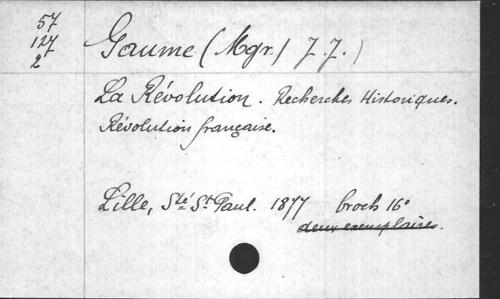 57
127
2
Gaume (Mgr.) J. J.)
La Révolution. Recherches Historiques.
Révolution française.
Lille, Sté St Paul. 1877 broch 16°
deux exemplaires.